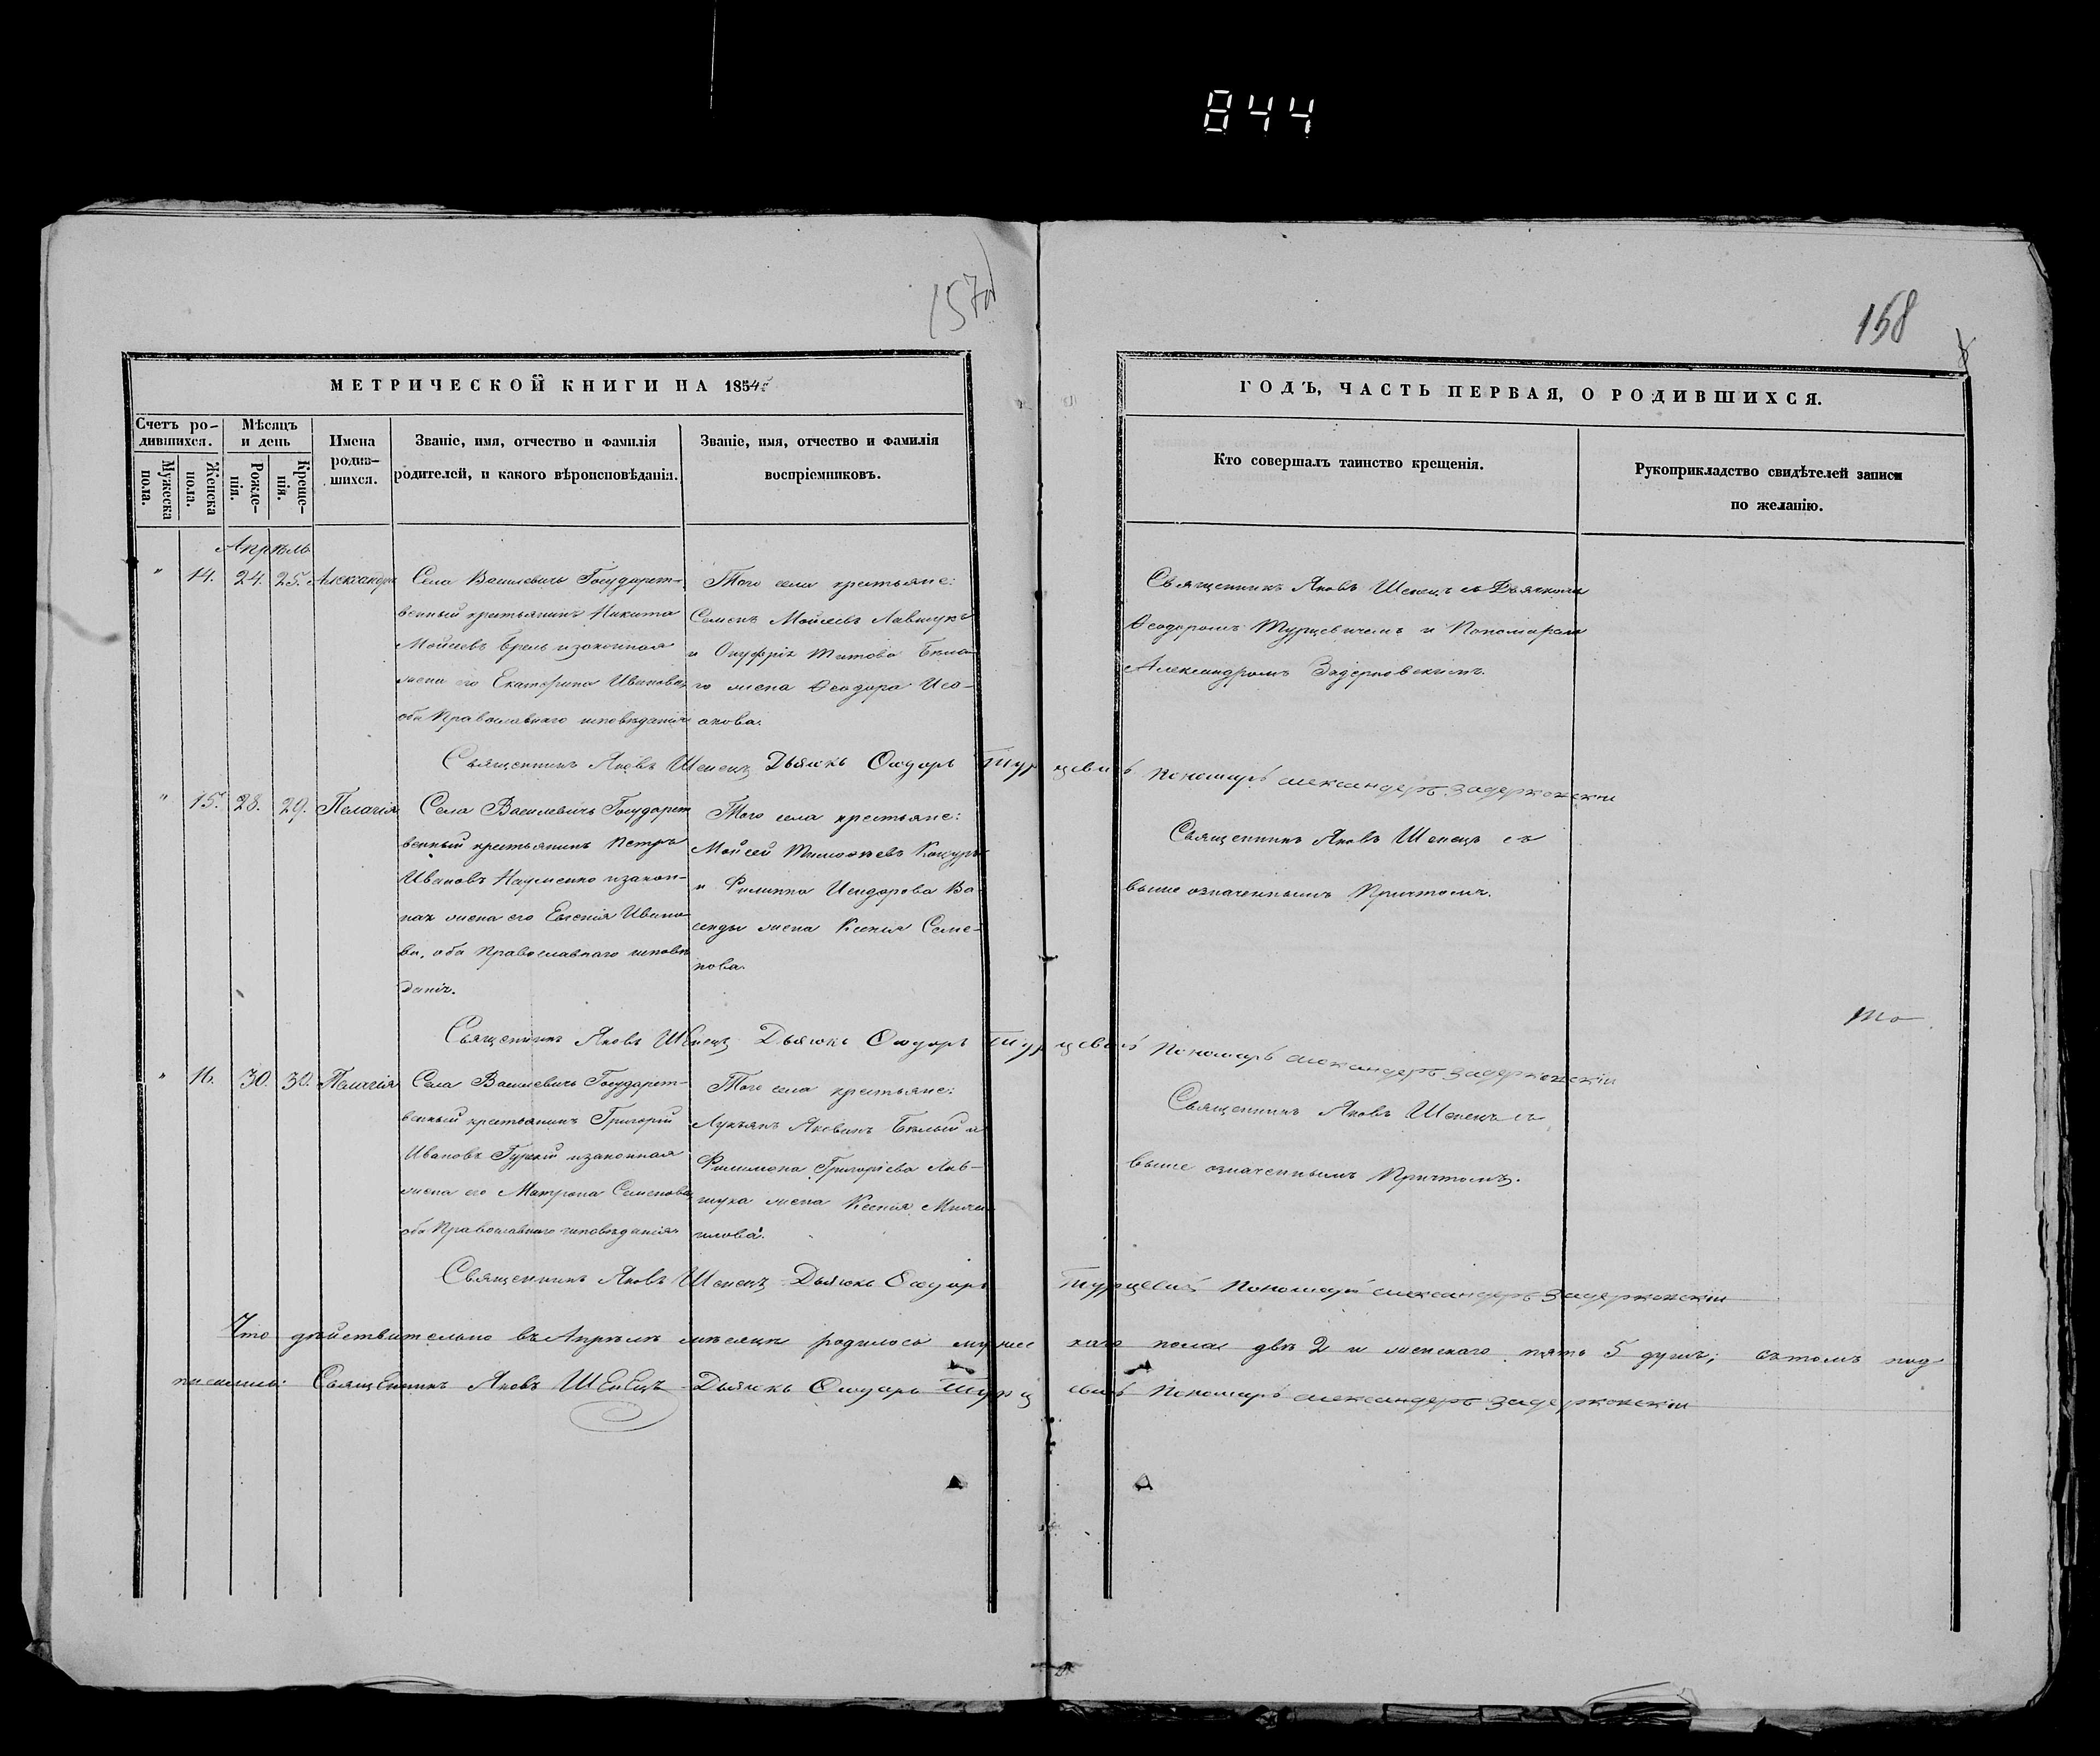 844
157об
158
МЕТРИЧЕСКОЙ КНИГИ НА 1854
ГОДЪ, ЧАСТЬ ПЕРВАЯ, О РОДИВШИХСЯ.
Счетъ ро-
дившихся.
Мужеска
пола.
Женска
пола.
Мѣсяцъ
и день
Рожде-
нія.
Креще-
нія.
Имена
родив-
шихся.
Званіе, имя, отчество и фамилія
родителей, и какого вѣроисповѣданія.
Званіе, имя, отчество и фамилія
воспріемниковъ.
Кто совершалъ таинство крещенія.
Рукоприкладство свидѣтелей записи
по желанію.
Апрѣль
" 14. 24. 25. Александра
Села Василевичъ Государст-
венный крестьянинъ Никита
Мойсеевъ изаконная
жена его Екатерина Иванова,
оба Православнаго исповѣданія
Того села крестьяне:
Семенъ Мойсеевъ Лавшукъ
и Онуфрія Титова Бѣла-
го жена Ѳеодора Иса-
акова.
Священникъ Яковъ Шепецъ съ Дьячкомъ
Ѳеодоромъ Турцевичемъ и Пономаремъ
Александромъ Задерковскимъ.
Священникъ Яковъ Шепецъ Дьячокъ Ѳеодоръ Турцевичъ Пономаръ александеръ Задерковскіи
" 15. 28. 29. Пелагія
Села Василевичъ Государст
венный крестьянинъ Петръ
Ивановъ Науменко изакон-
ная жена его Евгенія Ивано
ва, оба Православнаго исповѣ
данія.
Того села крестьяне:
Мойсей Тимоѳеевъ Кацуръ
и Филиппа Исидорова Ва-
жена Ксенія Семе-
нова.
Священникъ Яковъ Шепецъ съ
выше означеннымъ Причтомъ.
Священникъ Яковъ Шепецъ Дьячокъ Ѳеодоръ Турцевичъ Пономаръ александеръ Задерковскіи
" 16. 30. 30. Пелагія
Села Василевичъ Государст-
венный крестьянинъ Григорій
Ивановъ Гуркій изаконная
жена его Матрона Семенова
оба Православнаго исповѣданія
Того села крестьяне:
Лукьянъ Яковинъ Бѣлый и
Филимона Григоріева Лав-
шука жена Ксенія Михаи
илова.
Священникъ Яковъ Шепецъ съ
выше означеннымъ Причтомъ.
Священникъ Яковъ Шепецъ Дьячокъ Ѳеодоръ Турцевичъ Пономаръ александеръ Задерковскіи
Что дѣйствительно въ Апрѣлѣ мѣсяцѣ родилось мужес каго пола двѣ 2 и женскаго пять 5 душъ; въ томъ под
писались: Священникъ Яковъ Шепецъ Дьячокъ Ѳеодоръ Турцевичъ Пономаръ александеръ Задерковскіи